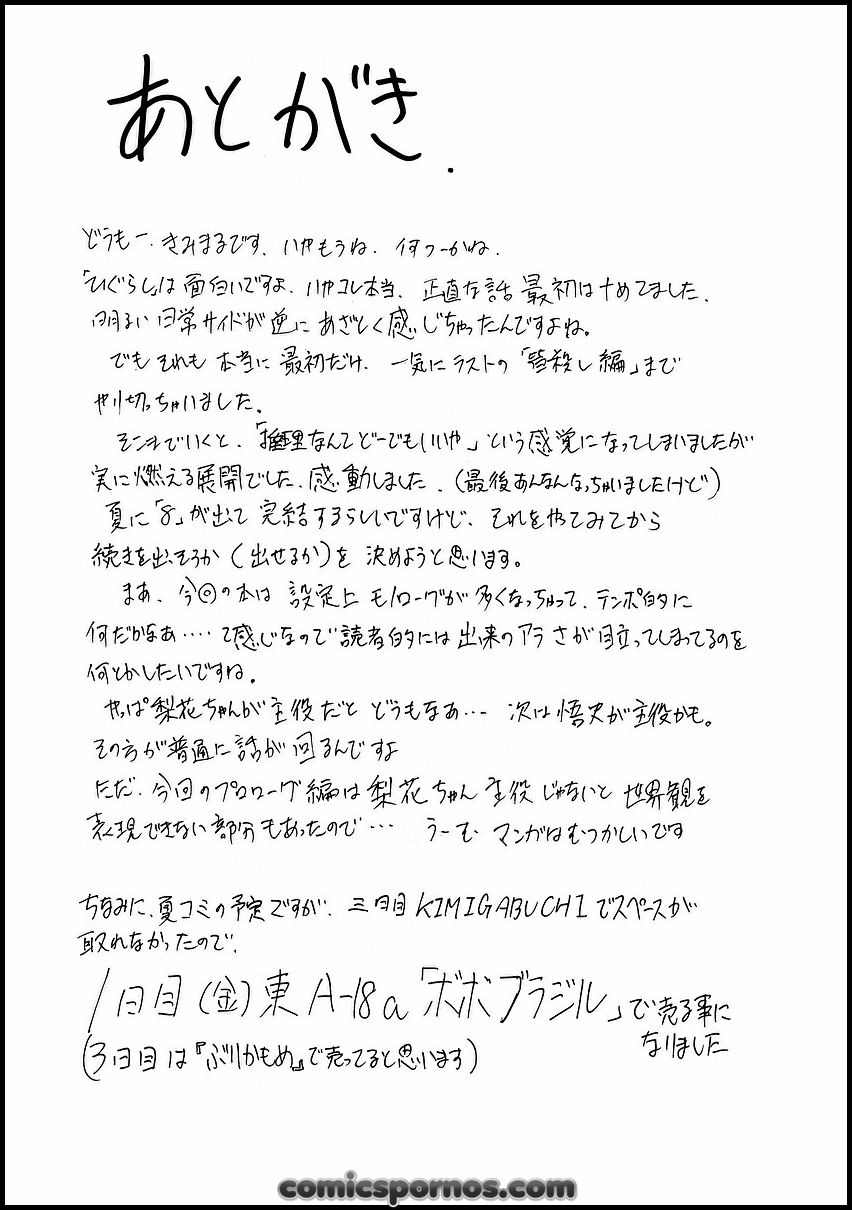 あとがき.
どうもー、きみまるです、いやもうね、何つーかね、
「ひぐらし」は面白いですよ、いやコレ本当、正直な話 最初は ナメてました、
明るい日常サイドが逆に あざとく感じちゃったんですよね。
でも それも 本当に 最初だけ、一気に ラストの「皆殺し編」まで
やり切っちゃいました。
そこまでいくと、「推理なんてどーでもいいや」という感覚になってしまいましたが
実に燃える展開でした、感動しました、(最後あんなんなっちゃいましたけど)
夏に「8」が出て 完結するらしいですけど、それをやってみてから
続きを出そうか(出せるか)を 決めようと思います。
まあ、今回の本は 設定上 モノローグが 多くなっちゃって、テンポ的に
何だかなあ‥‥て感じなので読者的には 出来のアラさが目立ってしまってるのを
何とかしたいですね。
やっぱ梨花ちゃんが主役だと どうもなあ… 次は悟史が主役かも。
その方が普通に話が回るんですよ
ただ、今回のプロローグ編は 梨花ちゃん 主役じゃないと 世界観を
表現できない部分もあったので… うーむ マンガはむつかしいです
ちなみに、夏コミの予定ですが、三日目 KIMIGABUCHIでスペースが
取れなかったので、
1日目(金)東 A-18a「ボボブラジル」で売る事に
なりました
(3日目は『ぶりかもめ』で売ってると思います)
comicspornos.com